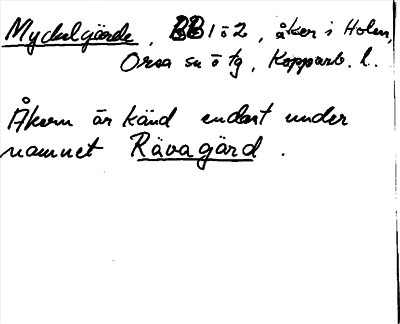 Myckelgärde, BB 1 o 2, åker i Holen,
Orsa sn o tg, Kopparb. l.
Åkern är känd endast under
namnet Rävagärd.